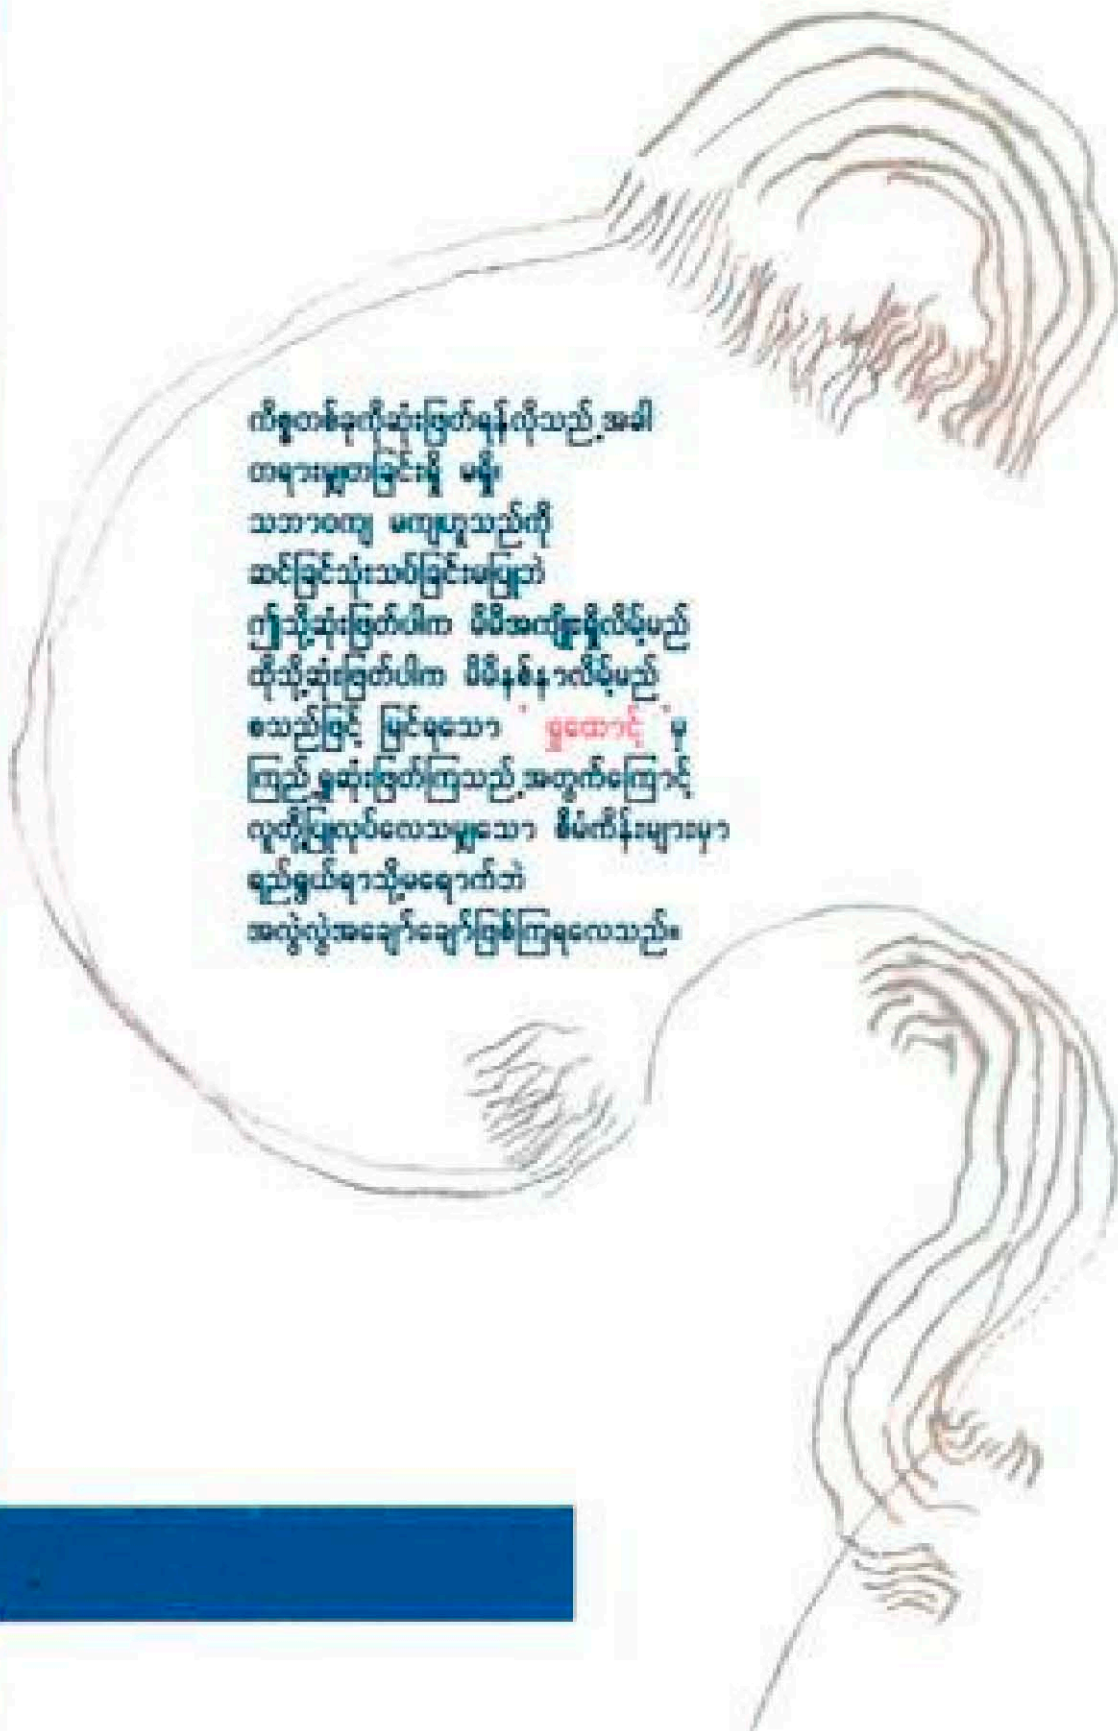 ကိစ္စတစ်ခုကိုဆုံးဖြတ်ရန်လိုသည့်အခါ
တရားမျှတခြင်းရှိ မရှိ၊
သဘာဝကျ မကျဟူသည်ကို
ဆင်ခြင်သုံးသပ်ခြင်းမပြုဘဲ
ဤသို့ဆုံးဖြတ်ပါက မိမိအကျိုးရှိလိမ့်မည်
ထိုသို့ဆုံးဖြတ်ပါက မိမိနစ်နာလိမ့်မည်
စသည်ဖြင့် မြင်ရသော ' ရှုထောင့် ' မှ
ကြည့်ရှုဆုံးဖြတ်ကြသည့်အတွက်ကြောင့်
လူတို့ပြုလုပ်လေသမျှသော စီမံကိန်းများမှာ
ရည်ရွယ်ရာသို့မရောက်ဘဲ
အလွဲလွဲအချော်ချော်ဖြစ်ကြရလေသည်။